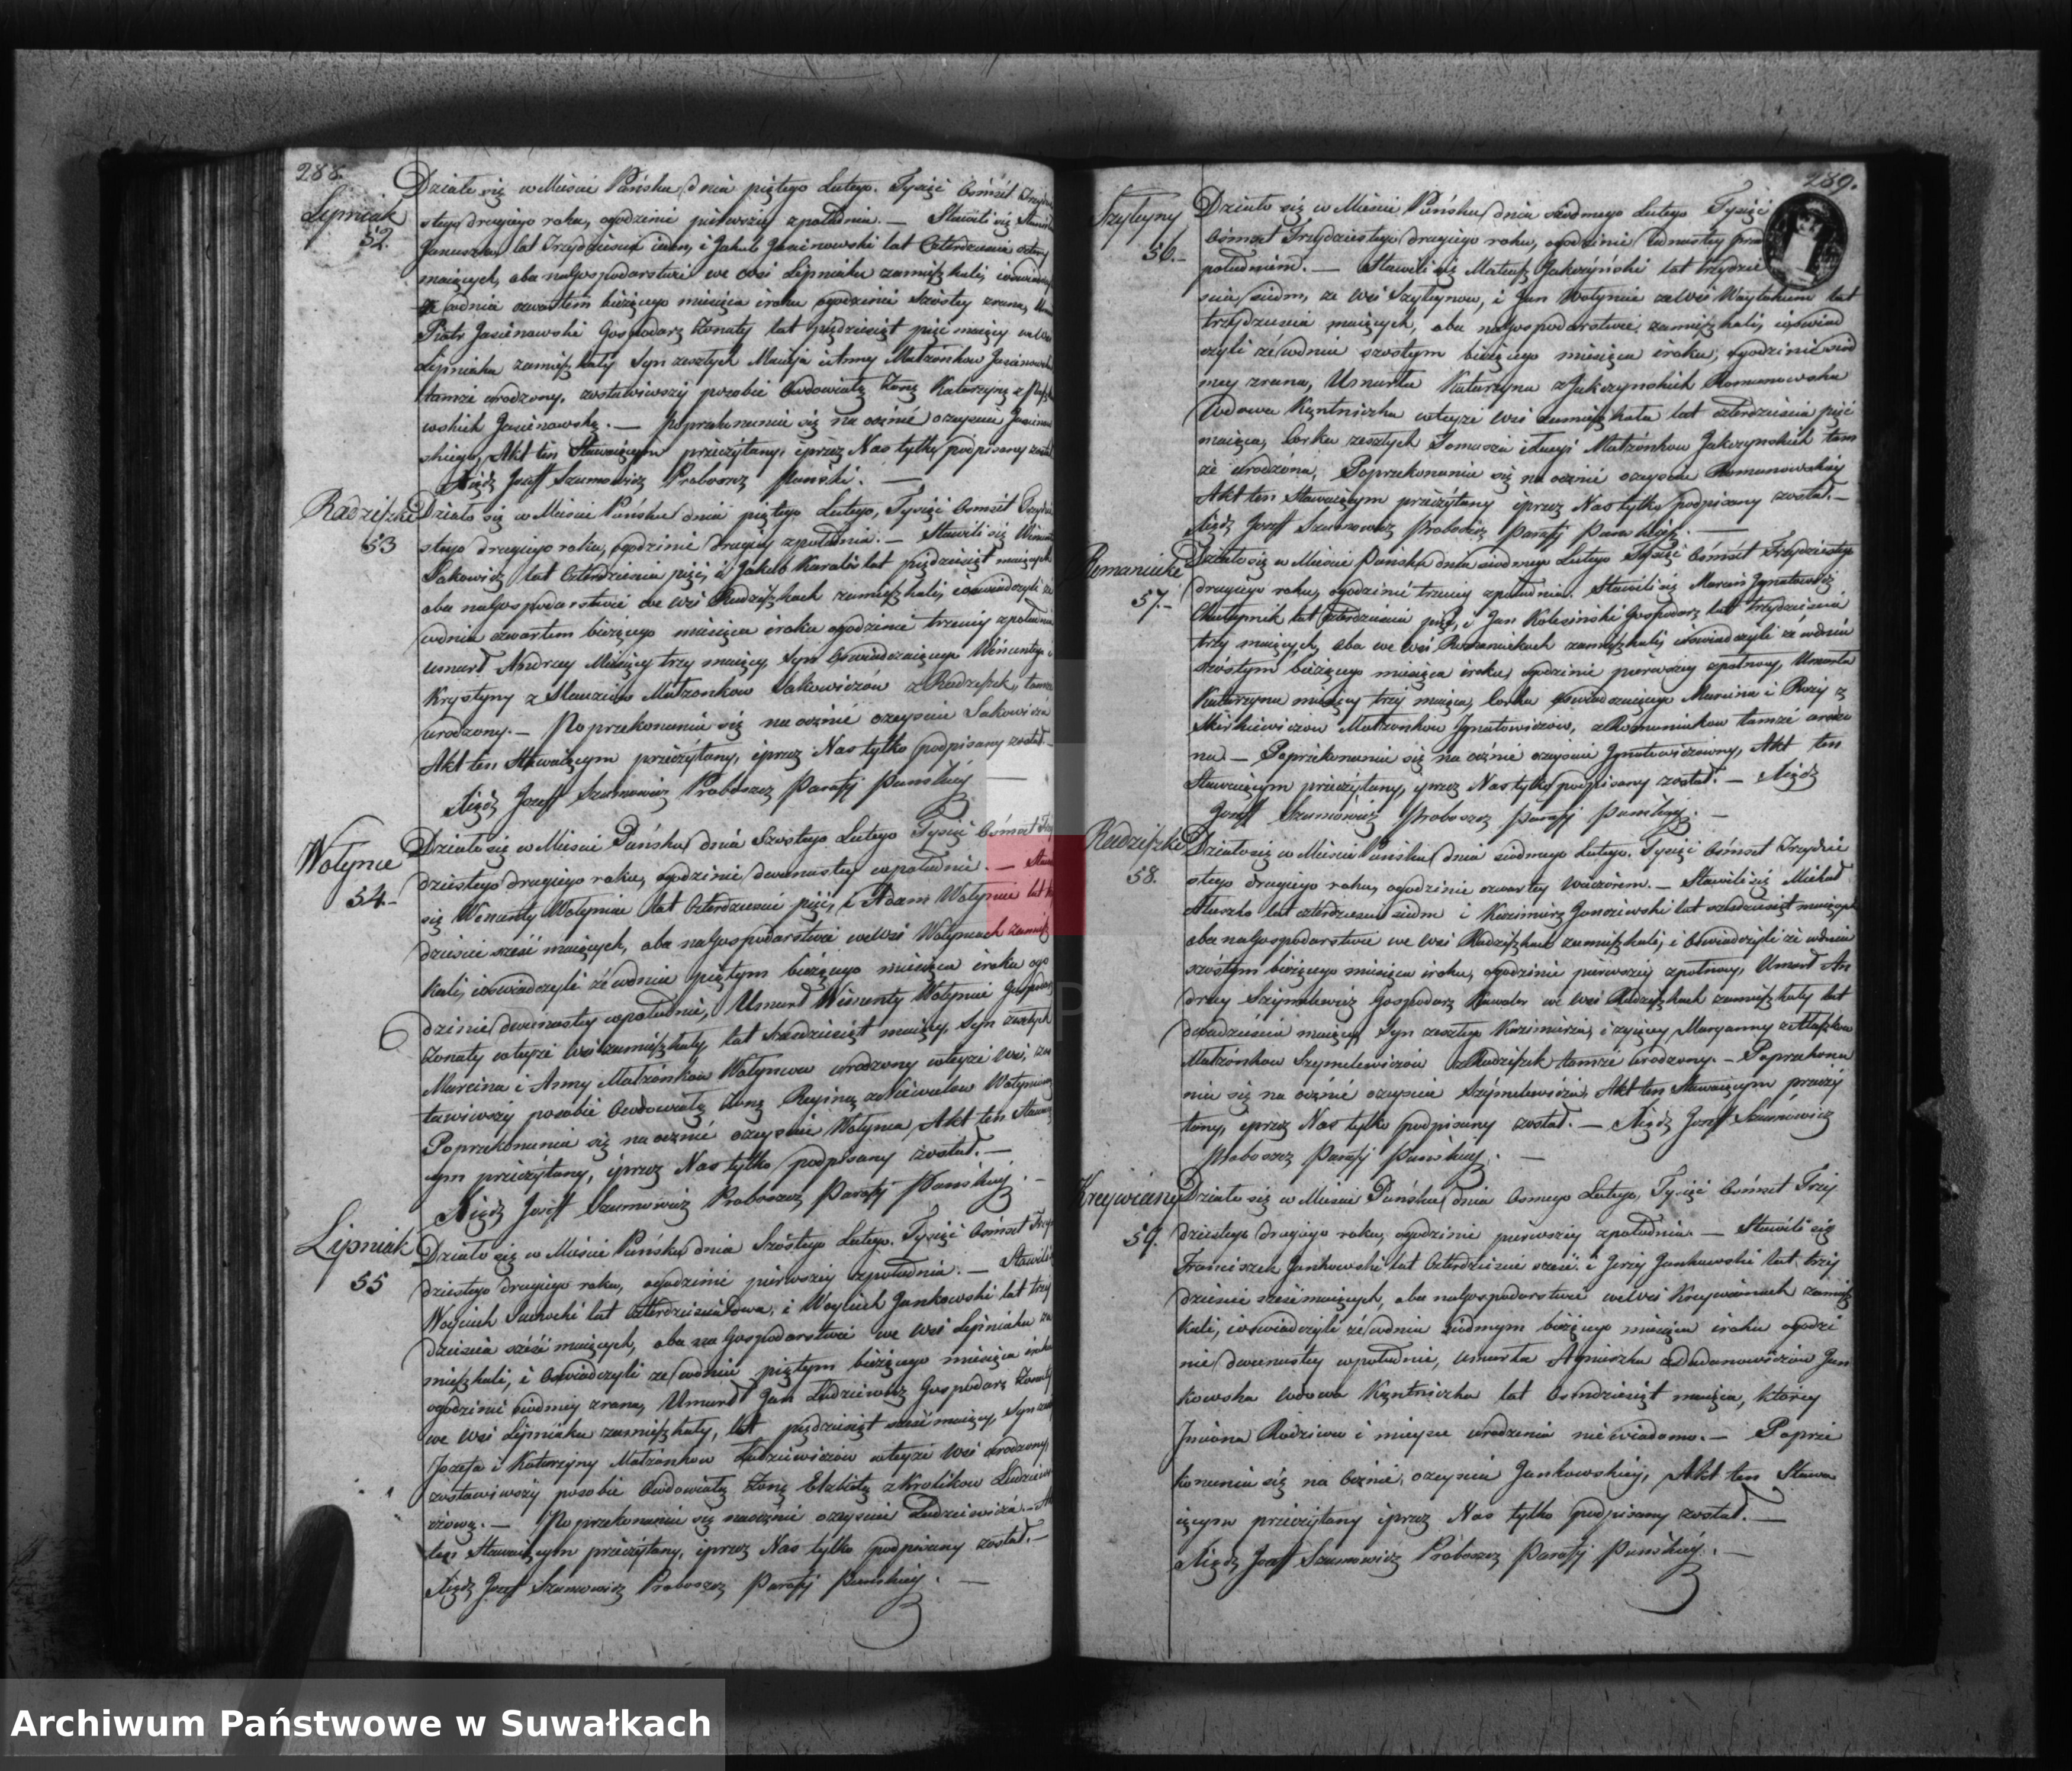 288.
Lipniak
52.
Działo się w Mieście Puńsku dnia piętego Lutego. Tysiąc Ośmset Trzydzie
stego drugiego roku, ogodzinie pierwszey zpołudnia. — Stawili się
Januszko lat Trzydzieści ieden, i Jakub Jasionowski lat Czterdzieści cztery
maiących, oba naGospodarstwie we wsi Lipniaku zamieszkali, i oświadczyli
że wdniu czwartem bieżącego miesiąca iroku ogodzinie szostey zrana,
Piotr Jasienowski Gospodarz żonaty lat pięćdziesiąt pięć maiący
Lipniaku zamieszkały Syn zeszłych Macieja i Anny Małżonkow
tamże urodzony. zostawiwszy posobie Owdowiałą żonę Katarzynę z
wskich Jasienowską. — Poprzekonaniu się na ocznie o zeysciu
skiego, Akt ten Stawaiącym przeczytany, iprzez Nas tylko podpisany został
Xiądz Jozeff Szumowicz Proboszcz Puński. —
Radziszki
53
Działo się w Mieście Puńsku dnia piętego Lutego, Tysiąc Ośmset Trzydzie
stego drugiego roku, ogodzinie drugiey zpołudnia. — Stawili się
Sakowicz lat Czterdzieści pięć, i Jakub Karalis lat pięćdziesiąt maiących
oba naGospodarstwie we wsi Radziszkach zamieszkali, i oświadczyli że
wdniu czwartem bieżącego miesiąca iroku ogodzinie trzeciey zpołudnia
umarł Andrzey Miesięcy trzy maiący, Syn Oświadczaiącego Wincentego i
Krystyny z Małżonkow Sakowiczów z Radziszek, tamże
urodzony. — Po przekonaniu się na ocznie ozeysciu Sakowicza
Akt ten Stawaiącym przeczytany, iprzez Nas tylko podpisany został. —
Xiądz Jozeff Szumowicz Proboszcz Parafij Puńskiey —
Wołynce
54. —
Działo się w Mieście Puńsku dnia Szostego Lutego Tysiąc Ośmset Trzy
dziestego drugiego roku, ogodzinie dwunastey wpołudnie. —
się Wincenty Wołyniec lat Czterdzieści pięć, i Adam Wołyniec lat
dzieści sześć maiących, oba naGospodarstwie weWsi Wołyncach zamiesz
kali, i oświadczyli że wdniu piętym bieżącego miesiąca iroku ogo
dzinie dwunastey wpołudnie, Umarł Wincenty Wołyniec Gospodarz
żonaty wteyże Wsi zamieszkały lat sześdziesiąt maiący, Syn zeszłych
Marcina i Anny Małżonkow Wołyncow urodzony wteyże Wsi, zos
tawiwszy posobie Owdowiałą żonę Reginę
Poprzekonaniu się na ocznie ozeysciu Wołynca, Akt ten Stawaią
cym przeczytany, iprzez Nas tylko podpisany został. —
Xiądz Jozeff Szumowicz Proboszcz Parafij Puńskiey. —
Lipniak
55
Działo się w Mieście Puńsku dnia Szóstego Lutego. Tysiąc Ośmset Trzy
dziestego drugiego roku, ogodzinie pierwszey zpołudnia. — Stawili się
Woyciech lat Czterdzieścidwa, i Woyciech Jankowski lat trzy
dzieścia sześć maiących, oba na Gospodarstwie we Wsi Lipniaku za
mieszkali, i Oświadczyli ze wdniu piętym bieżącego miesiąca iroku
ogodzinie siodmey zrana, Umarł Jan Ludziewicz Gospodarz żonaty
we Wsi Lipniaku zamieszkały, lat pięćdziesiąt sześć maiący, Syn
Jozefa i Katarzyny Małżonkow Ludziewiczow wteyże Wsi urodzony,
zostawiwszy posobie Owdowiałą żonę Elżbietę zKrolikow Ludziewi
czową. — Po przekonaniu się naocznie ozeysciu Ludziewicza. — Akt
ten Stawaiącym przeczytany, iprzez Nas tylko podpisany został. —
Xiądz Jozeff Szumowicz Proboszcz Parafij Puńskiey. —
289.
56. —
Działo się w Mieście Puńsku dnia siodmego Lutego Tysiąc
Ośmset Trzydziestego drugiego roku, ogodzinie iednastey przed
południem. — Stawili się Mateusz Jakczyński lat trzydzie
ścia siedm, ze Wsi i Jan Wołyniec zeWsi lat
trzydzieścia maiących, oba naGospodarstwie zamieszkali, ioświad
czyli żewdniu szostym bieżącego miesiąca iroku, ogodzinie siod
mey zrana, Umarła Katarzyna zJakczynskich Romanowska
Wdowa Kątniczka wteyże Wsi zamieszkała lat czterdzieścia pięć
maiąca, Corka zeszłych Tomasza i Małżonkow Jakczynskich tam
że urodzona, Poprzekonaniu się na ocznie ozeysciu Romanowskiey
Akt ten Stawaiącym przeczytany iprzez Nas tylko podpisany został. —
Xiądz Jozeff Szumowicz Proboszcz Parafij Puńskiey. —
Romaniuki
57. —
Działo się w Mieście Puńsku dnia siodmego Lutego Tysiąc Ośmset Trzydziestego
drugiego roku, ogodzinie trzeciey zpołudnia. Stawili się Marcin Jgnatowicz
Chałupnik lat Czterdzieścia pięć, i Jan Kolesiński Gospodarz lat trzydzieścia
trzy maiących, oba we Wsi Romaniukach zamieszkali, ioświadczyli że wdniu
szóstym bieżącego miesiąca iroku, ogodzinie pierwszey zpołnocy, Umarła
Katarzyna miesięcy trzy maiąca, Corka oświadczaiącego Marcina i Rozij z
Mirkiewiczow Małżonkow Jgnatowiczow, zRomaniukow tamże urodzo
na. — Poprzekonaniu się na ocznie ozeysciu Jgnatowiczowny, Akt ten
Stawaiącym przeczytany, yprzez Nas tylko podpisany został. — Xiądz
Jozeff Szumowicz Proboszcz Parafij Puńskiey. —
Radziszki
58.
Działo się w Mieście Puńsku dnia siodmego Lutego. Tysiąc Ośmset Trzydzie
stego drugiego roku, ogodzinie czwartey wieczorem. — Stawili się Michał
lat czterdzieści siedm i Kazimierz Janczewski lat sześdziesiąt maiących
oba naGospodarstwie we Wsi Radziszkach zamieszkali, i Oświadczyli że wdniu
szóstym bieżącego miesiąca iroku, ogodzinie pierwszey zpołnocy, Umarł An
drzey Szymelewicz Gospodarz Kawaler we Wsi Radziszkach zamieszkały lat
dwadzieścia maiący, Syn zeszłego Kazimierza, i zyiącey Maryanny
Małżonkow Szymelewiczow zRadziszek tamże urodzony. — Poprzekona
niu się na ocznie ozeysciu Szymelewicza, Akt ten Stawaiącym przeczy
tany, iprzez Nas tylko podpisany został. — Xiądz Jozeff Szumowicz
Proboszcz Parafij Puńskiey. —
Kreywiany
59.
Działo się w Mieście Puńsku dnia Osmego Lutego, Tysiąc Ośmset Trzy
dziestego drugiego roku, ogodzinie pierwszey zpołudnia. — Stawili się
Franciszek Jankowski lat Czterdzieści sześć i Jerzy Jankowski lat trzy
dzieście sześć maiących, oba naGospodarstwie weWsi Kreywianach zamiesz
kali, ioświadczyli że wdniu siodmym bieżącego miesiąca iroku ogodzi
nie dwunastey wpołudnie, umarła Agnieszka Jan
kowska Wdowa Kątniczka lat Osmdziesiąt maiąca, Którey
Jmiona Rodziców i mieysce urodzenia niewiadome. — Poprze
konaniu się na Ocznie, ozeysciu Jankowskiey, Akt ten Stawa
iącym przeczytany iprzez Nas tylko podpisany został. —
Xiądz Jozeff Szumowicz Proboszcz Parafij Puńskiey. —
Archiwum Państwowe w Suwałkach